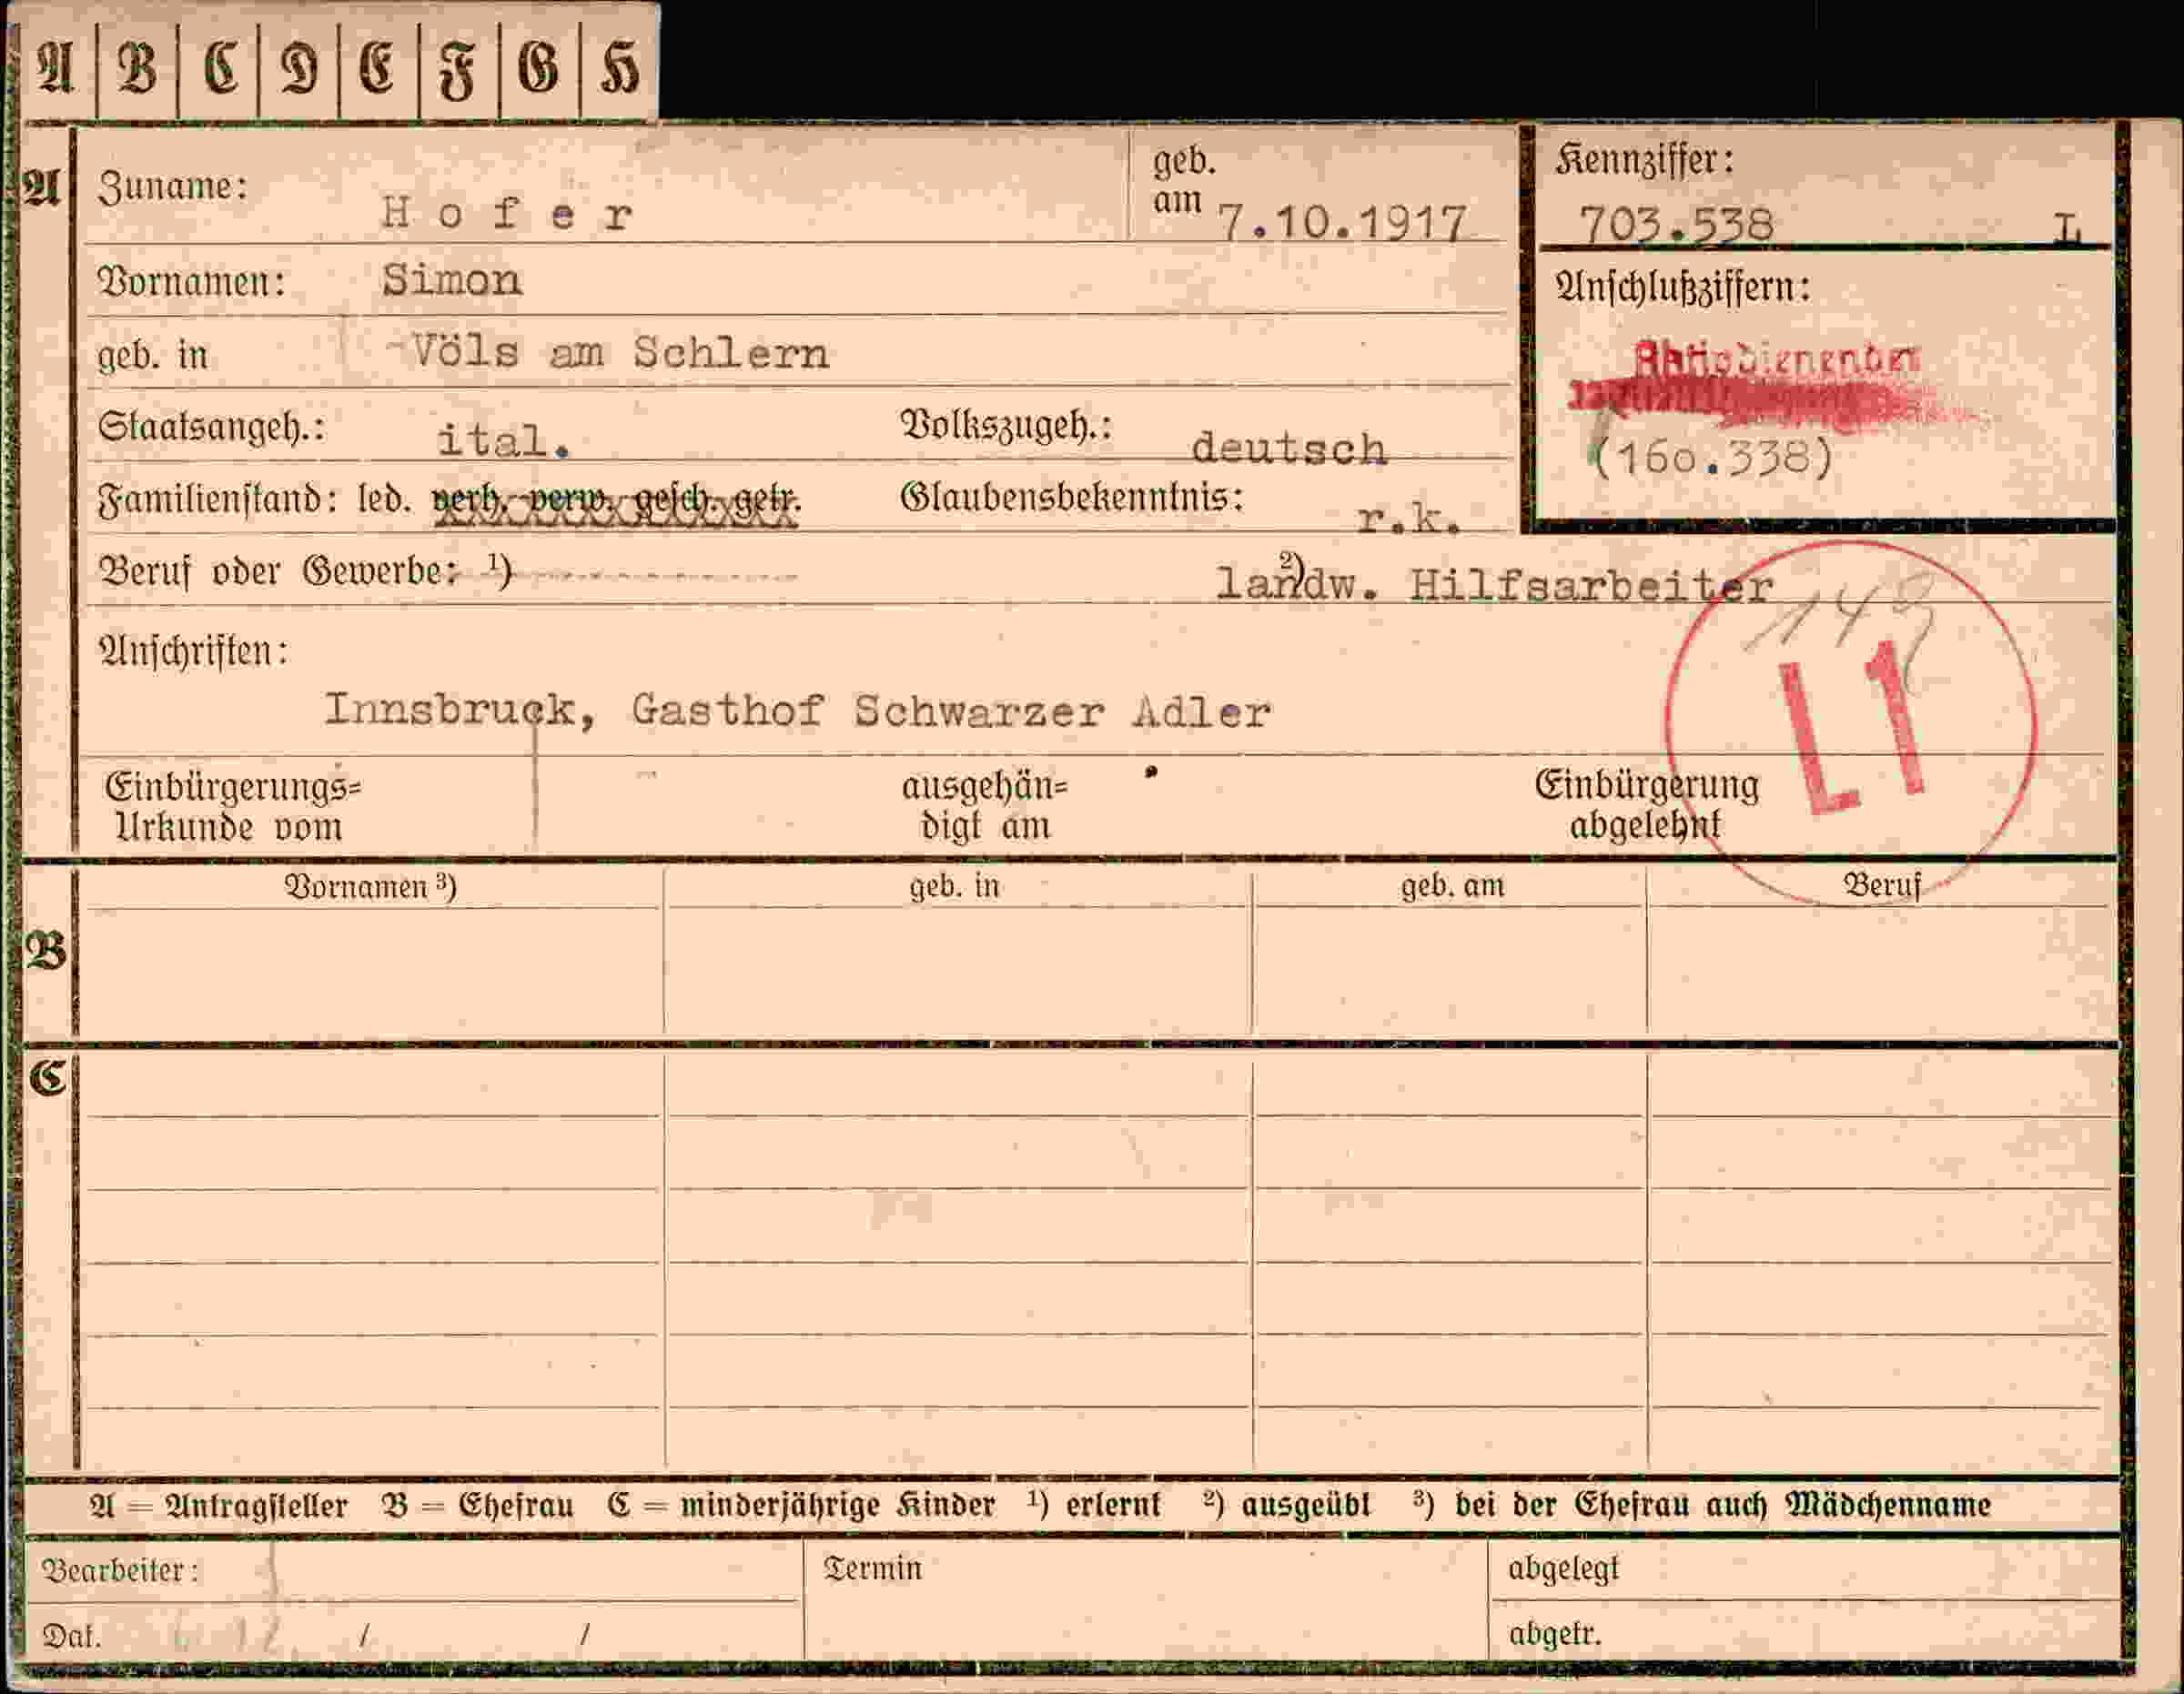 A B C D E F G H
A Zuname: Hofer geb. am 7.10.1917 Kennziffer: 703.538 L
Vornamen: Simon Anschlußziffern:
geb. in Völs am Schlern
Staatsangeh.: ital. Volkszugeh.: deutsch (160.338)
Familienstand: led. verh. verw. gesch. getr. Glaubensbekenntnis: r.k.
Beruf oder Gewerbe: ¹) ²) landw. Hilfsarbeiter
149
Anschriften: L1
Innsbruck, Gasthof Schwarzer Adler
Einbürgerungs= ausgehän= Einbürgerung
Urkunde vom digt am abgelehnt
Vornamen ³) geb. in geb. am Beruf
B
C
A = Antragsteller B = Ehefrau C = minderjährige Kinder ¹) erlernt ²) ausgeübt ³) bei der Ehefrau auch Mädchenname
Bearbeiter: Termin abgelegt
Dat. / / abgetr.